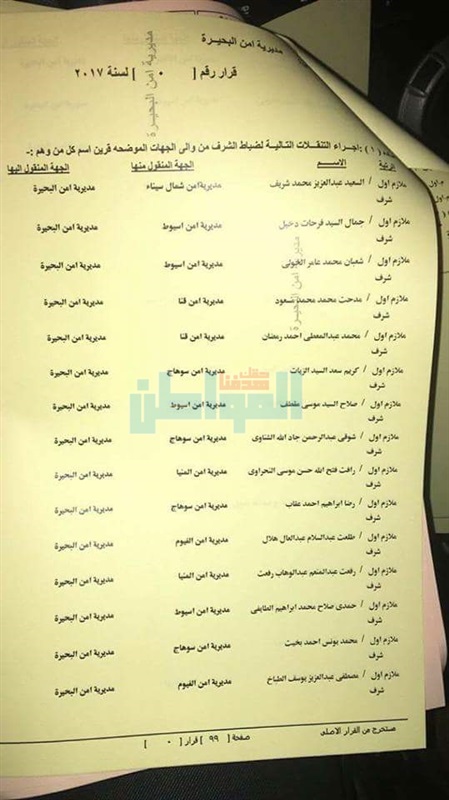 مديرية امن البحيرة
قرار رقم [ ٠ ] لسنة ٢٠١٧
( ١ ) : اجراء التنقلات التالية لضباط الشرف من والى الجهات الموضحه قرين اسم كل من وهم :-
الرتبة الاســـم الجهة المنقول منها الجهة المنقول اليها
ملازم اول شرف / السعيد عبدالعزيز محمد شريف مديرية امن شمال سيناء مديرية امن البحيرة
ملازم اول شرف / جمال السيد فرحات دخيل مديرية امن اسيوط مديرية امن البحيرة
ملازم اول شرف / شعبان محمد عامر مديرية امن اسيوط مديرية امن البحيرة
ملازم اول شرف / مدحت محمد محمد مسعود مديرية امن قنا مديرية امن البحيرة
ملازم اول شرف / محمد عبدالمعطى احمد رمضان مديرية امن قنا مديرية امن البحيرة
ملازم اول شرف / كريم سعد السيد الزيات مديرية امن سوهاج مديرية امن البحيرة
ملازم اول شرف / صلاح السيد موسى مديرية امن اسيوط مديرية امن البحيرة
ملازم اول شرف / شوقى عبدالرحمن جاد الله الشناوى مديرية امن سوهاج مديرية امن البحيرة
ملازم اول شرف / رافت فتح الله حسن موسى النحراوى مديرية امن المنيا مديرية امن البحيرة
ملازم اول شرف / رضا ابراهيم احمد عقاب مديرية امن سوهاج مديرية امن البحيرة
ملازم اول شرف / طلعت عبدالسلام عبدالعال هلال مديرية امن الفيوم مديرية امن البحيرة
ملازم اول شرف / رفعت عبدالمنعم عبدالوهاب رفعت مديرية امن المنيا مديرية امن البحيرة
ملازم اول شرف / حمدى صلاح محمد ابراهيم الطايفى مديرية امن اسيوط مديرية امن البحيرة
ملازم اول شرف / محمد يونس احمد بخيت مديرية امن سوهاج مديرية امن البحيرة
ملازم اول شرف / مصطفى عبدالعزيز يوسف الطباخ مديرية امن الفيوم مديرية امن البحيرة
مستخرج من القرار الاصلى صفحة [ ٩٩ ] قرار [ ٠ ]
مديرية امن البحيرة
مديرية امن البحيرة
المواطن
حقك هدفنا